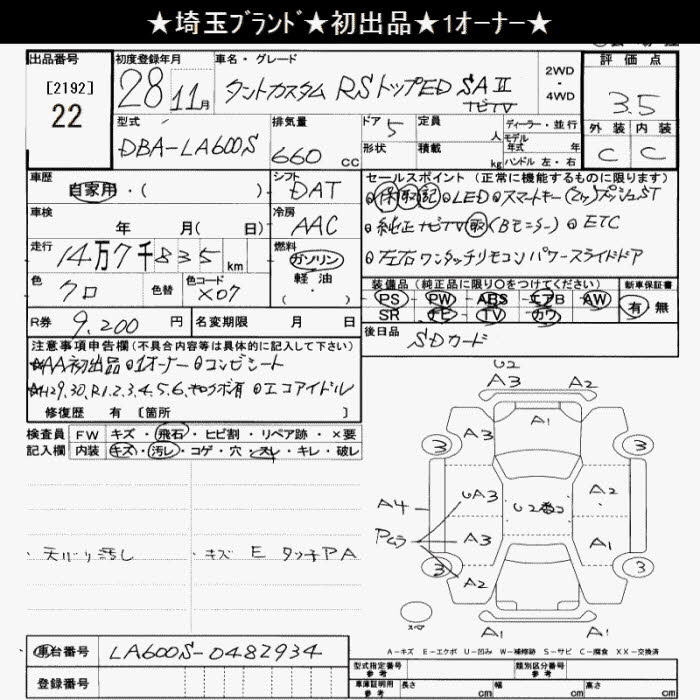 ★埼玉ブランド★初出品★1オーナー★
出品番号
[2192]
22
初度登録年月
28 11月
車名・グレード
タントカスタム RSトップED SAⅡ
ナビTV
2WD
・
4WD
評価点
3.5
外装 内装
C C
型式
DBA-LA600S
排気量
660 cc
ドア 5
形状
定員 人
積載 kg
ディーラー・並行
モデル
年式 年
ハンドル 左・右
車歴
自家用・( )
シフト
DAT
セールスポイント (正常に機能するものに限ります)
保取記 LED スマートキー(2ヶ)プッシュST
純正ナビTV取(Bモニター) ETC
左右ワンタッチリモコンパワースライドドア
車検
年 月( 日)
冷房
AAC
走行
14万7千835km
燃料
ガソリン
軽油
( ・ )
色
クロ
色替
色コード
X07
装備品(純正品に限り○をつけてください)
PS・PW・ABS・エアB・AW
SR ナビ TV カワ
新車保証書
有・無
R券 9,200円
名変期限 月 日
後日品 SDカード
注意事項申告欄(不具合内容等は具体的に記入して下さい)
AA初出品 1オーナー コンビシート
H29,30,R1,2,3,4,5,6,キロク有 エコアイドル
修復歴 有 〔箇所 〕
検査員
記入欄
FW キズ・飛石・ヒビ割・リペア跡・×要
内装 キズ・汚レ・コゲ・穴・スレ・キレ・破レ
・天バリ汚し
・キズ E タッチPA
U2
A3
A2
A1
A3
3
3
A4
UA3
A2
A3
A1
A2
3
3
スペア
A1
A1
A-キズ E-エクボ U-凹み W-補修跡 S-サビ C-腐食 XX-交換済
車台番号 LA600S-0482934
登録番号
型式指定番号
参考
類別区分番号
参考
車庫証明用
参考
長さ cm 幅 cm 高さ cm